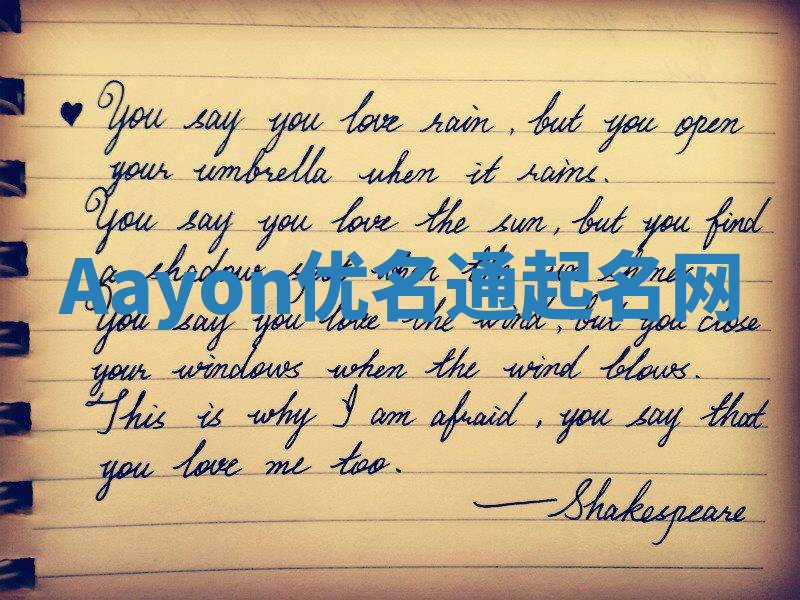 ♥ You say you love rain, but you open
your umbrella when it rains.
You say you love the sun, but you find
a shadow spot when the sun shines.
Aayon优名通起名网
You say you love the wind, but you close
your windows when the wind blows.
This is why I am afraid, you say that
you love me too.
— Shakespeare